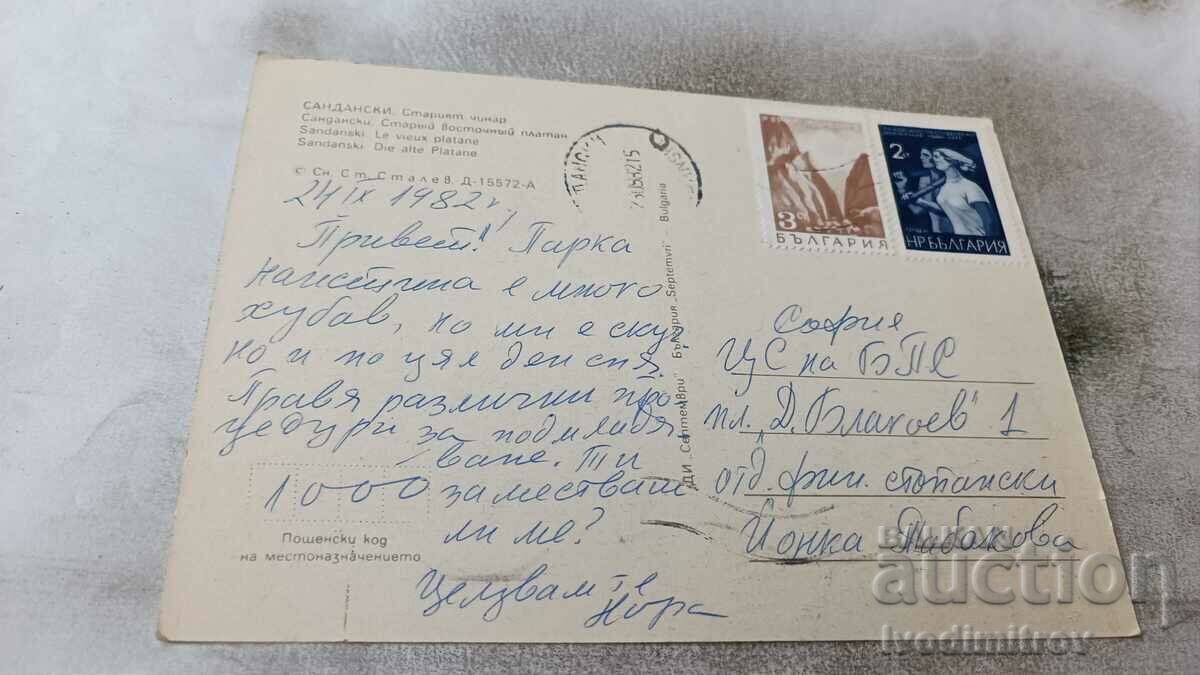 САНДАНСКИ. Старият чинар
Сандански. Старый восточный платан
Sandanski. Le vieux platane
Sandanski. Die alte Platane
© Сн. Ст. Сталев. Д-15572-А
24 IX 1982 г.,
Привет! Парка
наистина е много
хубав, но ми е скуч
но и по цял ден спя.
Правя различни про
цедури за подмладя
ване. Ти
1000 заместваш
ли ме?
Целувам те
Нора
Пощенски код
на местоназначението
ДИ „Септември" България „Septemvri" — Bulgaria
3
БЪЛГАРИЯ
2
НР БЪЛГАРИЯ
София
ЦС на БПС
пл. „Д. Благоев" 1
отд. фин. стопански
Йонка Табакова
BALKAN
auction
ivodimitrov